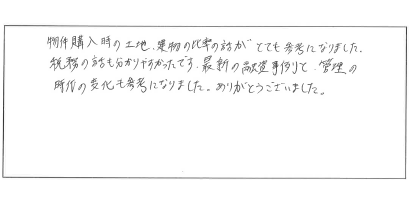 物件購入時の土地、建物の比率の話がとても参考になりました。
税務の話も分かりやすかったです。最新の融資事例と、管理の
時代の変化も参考になりました。ありがとうございました。